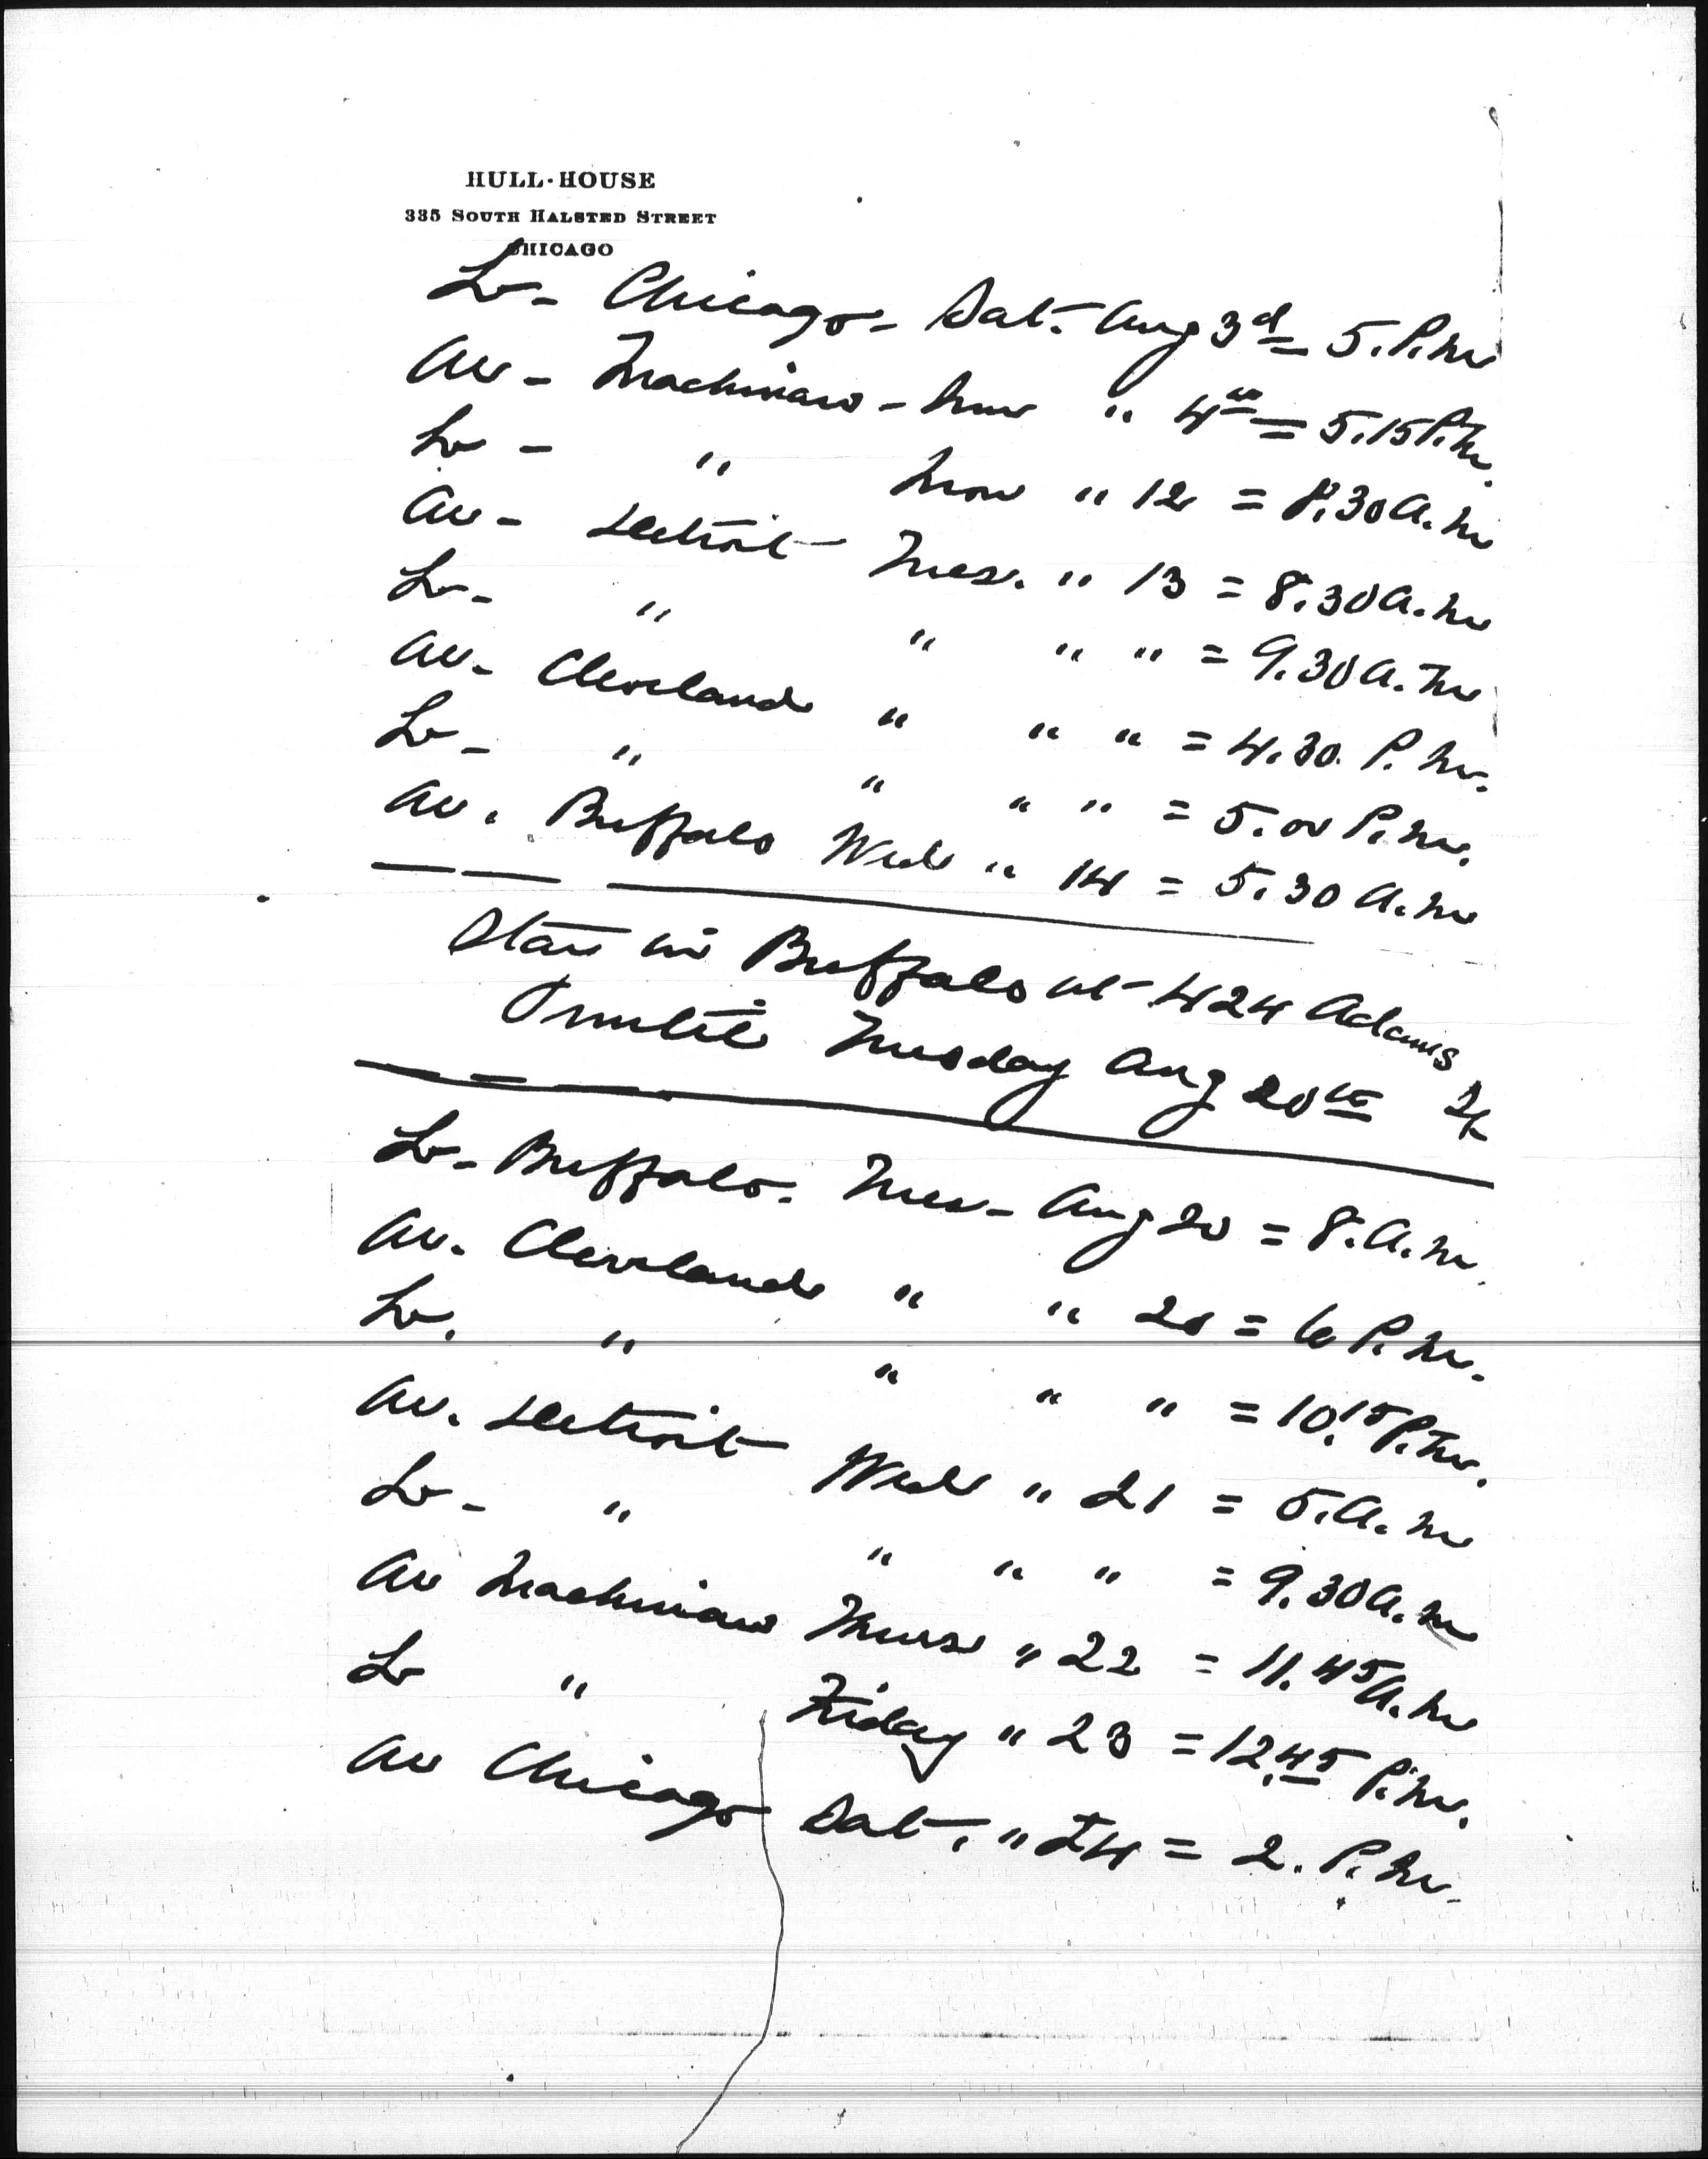 HULL-HOUSE
335 SOUTH HALSTED STREET
CHICAGO
Lv- Chicago- Sat. Aug 3d = 5. P.M
Arr- Mackinaw- Sun " 4th = 5.15 P.M.
Lv - " Mon " 12 = 8.30 A.M
Arr- Detroit Tues. " 13 = 8.30 A.M
Lv- " " " " = 9.30 A.M
Arr. Cleveland " " " = 4.30. P.M.
Lv- " " " " = 5.00 P.M.
Arr. Buffalo Wed " 14 = 5.30 A.M
Stay in Buffalo at 424 Adams St
until Tuesday Aug 20th
Lv- Buffalo. Tues- Aug 20 = 8. A.M.
Arr. Cleveland " " 20 = 6 P.M.
Lv. " " " " = 10.15 P.M.
Arr. Detroit Wed " 21 = 5. A.M
Lv- " " " " = 9.30 A.M
Arr Mackinaw Thurs " 22 = 11.45 A.M
Lv " Friday " 23 = 12.45 P.M.
Arr Chicago Sat. " 24 = 2. P.M.